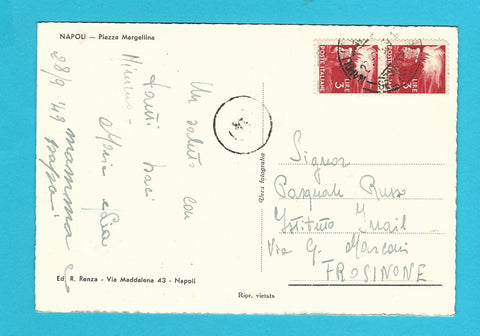 NAPOLI — Piazza Margellina
Un saluto con
tanti baci
mamma e
papà
28/9 49
Ed. R. Renza - Via Maddalena 43 - Napoli
Vera fotografia
Ripr. vietata
POSTE ITALIANE
LIRE
3
POSTE ITALIANE
LIRE
3
Signor
Pasquale Russo
Istituto Inail
Via G. Marconi
FROSINONE